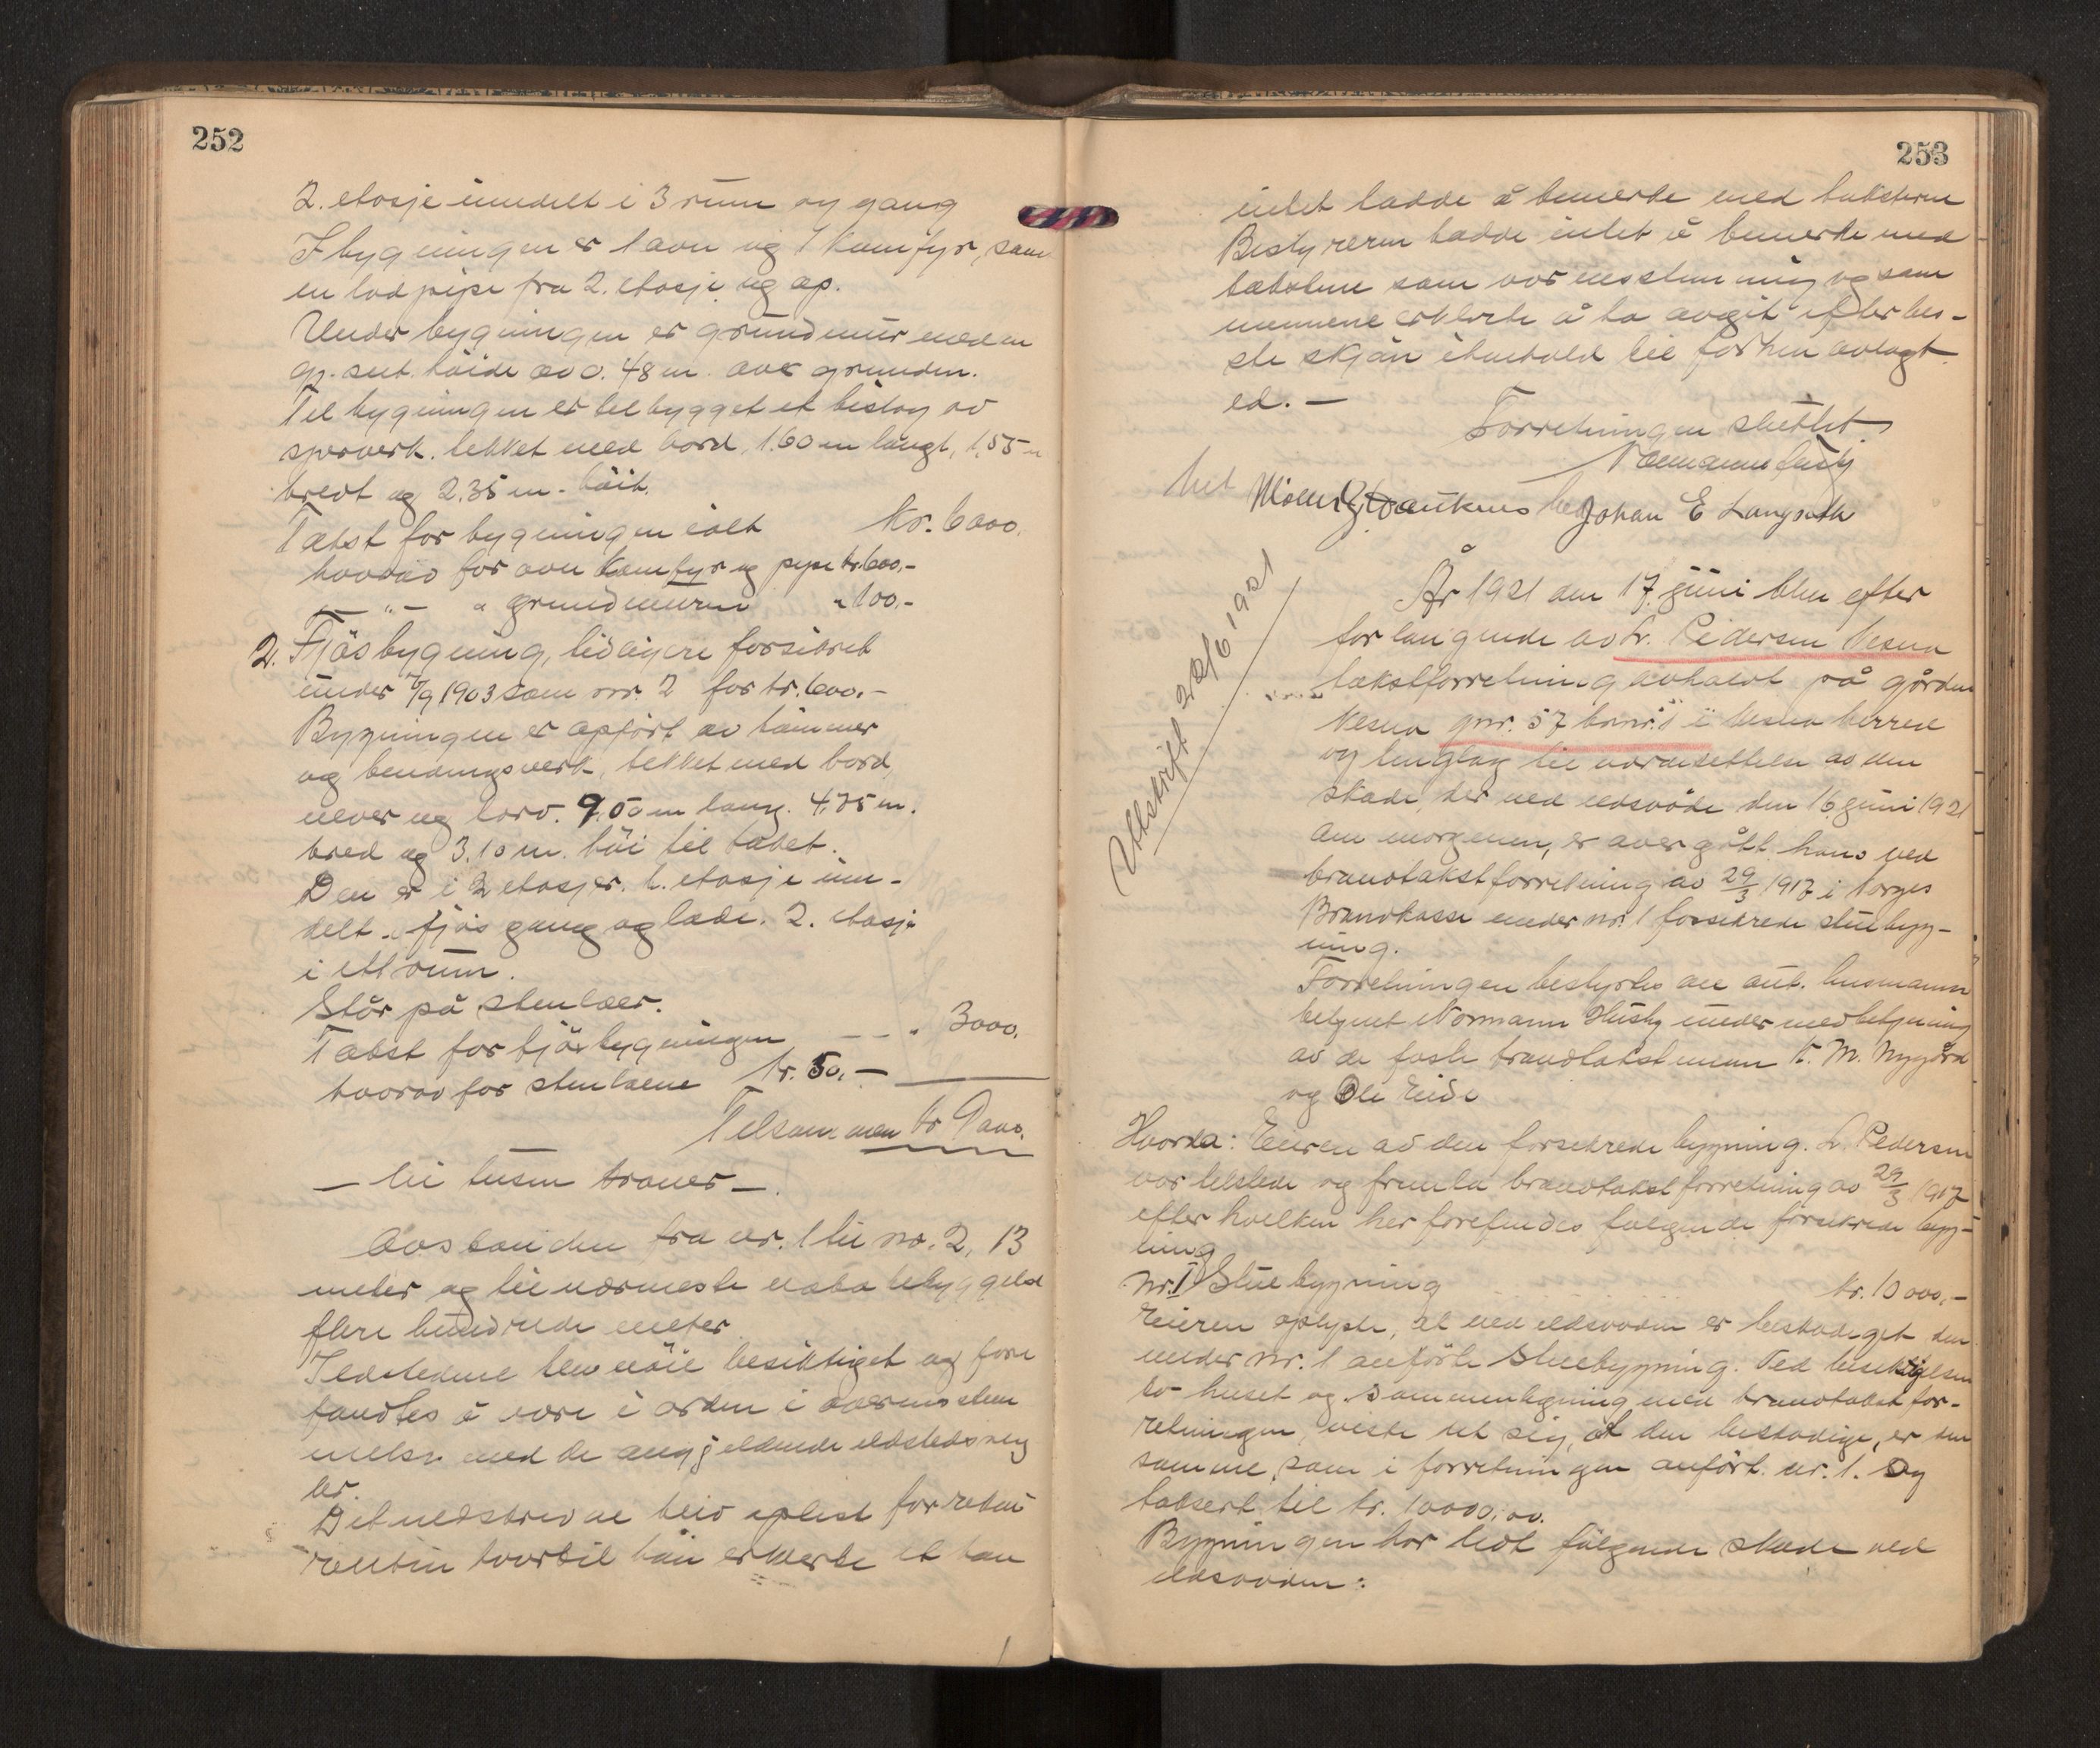 252
2. etasje inndelt i 3 rum og gang
I bygningen er 1 ovn og 1 komfyr, samt
en lodpipe fra 2. etasje og op.
Under bygningen er grundmur med en
gj. snt. høide av 0.48 m. over grunden.
Til bygningen er tilbygget et bislag av
sperverk. tekket med bord, 1.60 m langt, 1,55 m
bredt og 2,35 m. høit.
Takst for bygningen ialt Kr. 6000.
hvorav for ovn komfyr og pipe kr. 600,-
— " — " grundmuren " 100,-
2. Fjøsbygning, tidligere forsikret
under 5/9 1903 som nr. 2 for kr. 600.-
Bygningen er opført av tømmer
og bendingsverk, tekket med bord,
never og torv. 9,00 m lang. 4,75 m.
bred og 3.10 m. høi til taket.
Den er i 2 etasjer. 1. etasje inn-
delt i fjøs gang og lade. 2. etasje
i ett rum.
Står på stenlaer.
Takst for fjøsbygningen — — " 3000,
hvorav for stenlaene kr. 50,—
Tilsammen kr 9000.
— ni tusen kroner —.
Avstanden fra nr. 1 til nr. 2, 13
meter og til nærmeste nabobebyggelse
flere hundrede meter.
Ildstedene blev nøie besiktiget og fore
fandtes å være i orden i overensstem
melse med de angjeldende ildstedsreg
ler.
Det nedskrevne blev oplest for rekvi
renten hvortil han erklærte at han
253
intet hadde å bemerke med taksterne
Bestyreren hadde intet å bemerke med
takstene som var enstemmig og som
mennene erklærte å ha avgit efter bes-
te skjøn i henhold til forhen avlagt
ed. —
Forretningen sluttet
Normann Husby
Johan E Langseth
Utskrift 22/6 1921
År 1921 den 17. juni blev efter
forlangende av L. Pedersen Vesna
takstforretning avholdt på gården
Vesna gnr. 57 brnr. 1 i Vesna herred
og tinglag til værdsettelse av den
skade, der ved ildsvåde den 16 juni 1921
om morgenen, er overgått hans ved
brandtakstforretning av 29/3 1917 i Norges
Brandkasse under nr. 1 forsikrede stuebyg-
ning.
Forretningen bestyrtes av aut. lensmanns
betjent Normann Husby under medbetjening
av de faste brandtakstmenn K. M. Nygård
og Ole Eide
Hvorda: Eieren av den forsikrede bygning. L. Pedersen
var tilstede og fremla brandtakstforretning av 29/3 1917
efter hvilken her forefindes følgende forsikrede byg-
ning
Nr. 1 Stuebygning kr. 10 000,-
Eieren oplyste, at ved ildsvåden er beskadiget den
under nr. 1 anførte stuebygning. Ved besiktigelsen
av huset og sammenligning med brandtakstfor-
retningen, viste det sig, at den beskadige, er den
samme, som i forretningen anført nr. 1. og
taksert til kr. 10000,00.
Bygningen har lidt følgende skade ved
ildsvåden: